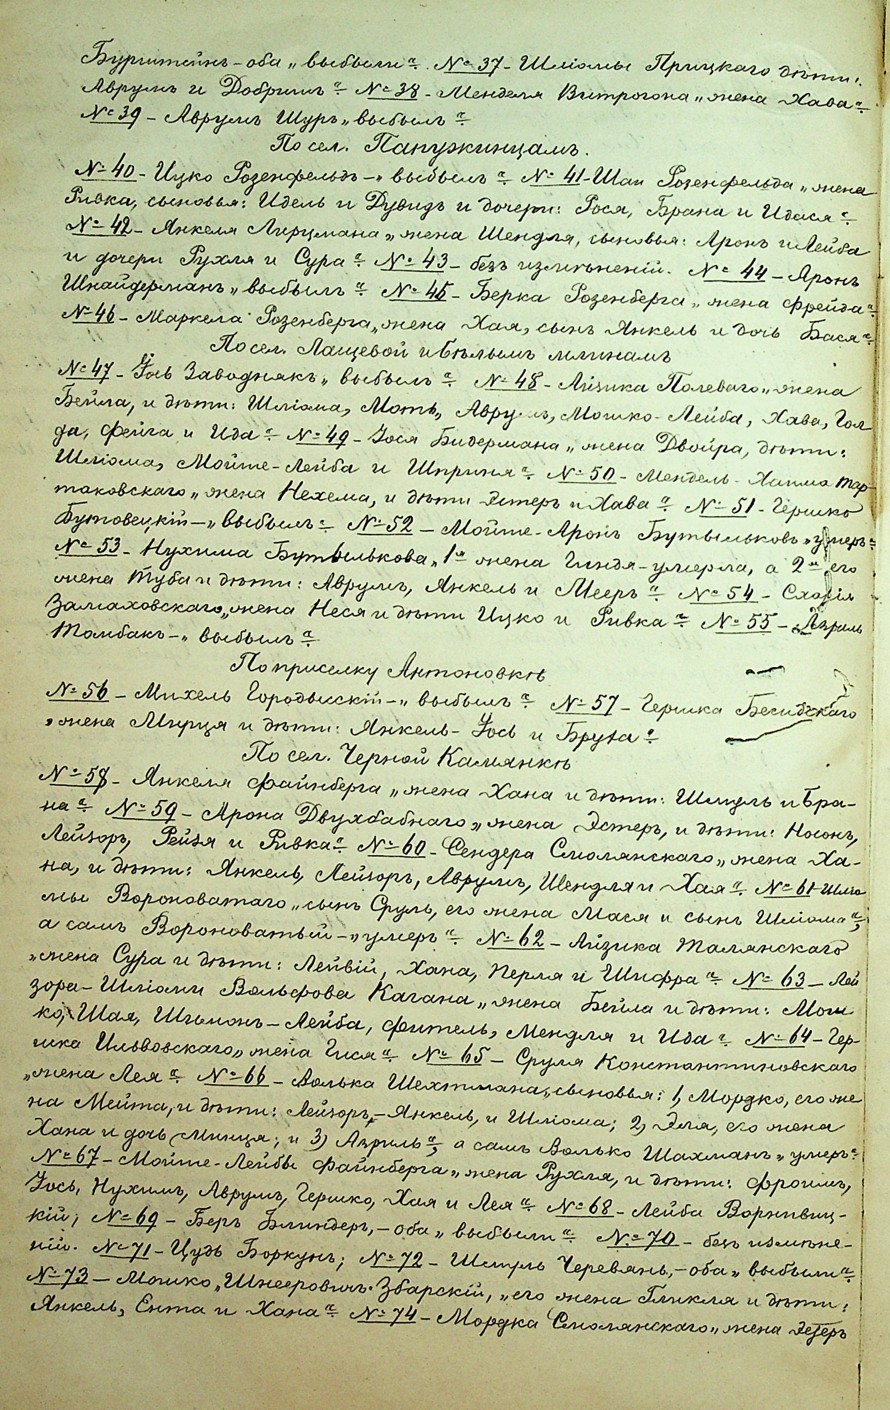 Бурштейнъ - оба „выбыли“. № 37 - Шліомы Прицкаго дѣти:
Аврумъ и Добришъ“. № 38 - Менделя Витрогона „жена Хава“.
№ 39 - Аврумъ Шуръ „выбылъ“.
По сел. Панужинцамъ.
№ 40 - Ицко Розенфельдъ - „выбылъ“. № 41 - Шаи Розенфельда „жена
Ривка, сыновья: Идель и Дувидъ и дочери: Рося, Брана и Идася“.
№ 42 - Янкеля Лирцмана „жена Шендля, сыновья: Аронъ и Лейба
и дочери Рухля и Сура“. № 43 - безъ измѣненій. № 44 - Аронъ
Шнайдерманъ „выбылъ“. № 45 - Берка Розенберга „жена Фрейда“.
№ 46 - Маркела Розенберга „жена Хая, сынъ Янкель и дочь Бася“.
По сел. Лащевой и Бѣлымъ млинамъ
№ 47 - Іось Заводнякъ „выбылъ“. № 48 - Айзика Полеваго „жена
Бейла, и дѣти: Шліома, Моть, Аврумъ, Мошко-Лейба, Хава, Гол-
да, Фейга и Ида“. № 49 - Іося Бидермана „жена Двойра, дѣти:
Шліома, Мойше-Лейба и Шприня“. № 50 - Мендель-Хаима Тар-
таковскаго „жена Нехема, и дѣти Эстеръ и Хава“. № 51 - Гершко
Бутовецкій - „выбылъ“. № 52 - Мойше-Аронъ Бутыльковъ „умеръ“.
№ 53 - Нухима Бутылькова „1я жена Гиндя - умерла, а 2я его
жена Туба и дѣти: Аврумъ, Янкель и Мееръ“. № 54 - Схарія
Заміховскаго „жена Неся и дѣти Ицко и Ривка“. № 55 - Азриль
Томбакъ - „выбылъ“.
По приселку Антоновкѣ
№ 56 - Михель Городысскій - „выбылъ“. № 57 - Гершка Бесидскаго
„жена Мирця и дѣти: Янкель-Іось и Бруха“.
По сел. Черной Камянкѣ
№ 58 - Янкеля Файнберга „жена Хана и дѣти: Шмуль и Бра-
на“. № 59 - Арона Двухбабнаго „жена Эстеръ, и дѣти: Носонъ,
Лейзоръ, Рейзя и Ривка“. № 60 - Сендера Смолянскаго „жена Ха-
на, и дѣти: Янкель, Лейзоръ, Аврумъ, Шендля и Хая“. № 61 - Шліо-
мы Вороноватаго „сынъ Сруль, его жена Мася и сынъ Шліома“,
а самъ Вороноватый - „умеръ“. № 62 - Айзика Талянскаго
„жена Сура и дѣти: Лейвій, Хана, Перля и Шифра“. № 63 - Лей
зора-Шліоми Вольфова Кагана „жена Бейла и дѣти: Мош
ко, Шая, Шимонъ-Лейба, Фитель, Мендля и Ида“. № 64 - Гер-
шка Ильвовскаго „жена Гися“. № 65 - Сруля Константиновскаго
„жена Лея“. № 66 - Волька Шехтмана „сыновья: 1, Мордко, его же
на Мейта, и дѣти: Лейзоръ, - Янкель, и Шліома; 2) Эля, его жена
Хана и дочь Минця; и 3) Азриль“, а самъ Волько Шахманъ „умеръ“.
№ 67 - Мойше-Лейбы Файнберга „жена Рухля, и дѣти: Фроимъ,
Іось, Нухимъ, Аврумъ, Гершко, Хая и Лея“. № 68 - Лейба Ворнивиц-
кій; № 69 - Беръ Блиндеръ, - оба „выбыли“. № 70 - безъ измѣне-
ній. № 71 - Цудь Боркунъ; № 72 - Шмуль Черевань, - оба „выбыли“.
№ 73 - Мошко „Шнееровичъ“ Збарскій, „его жена Гликля и дѣти:
Янкель, Ента и Хана“. № 74 - Мордка Смолянскаго „жена Эстеръ